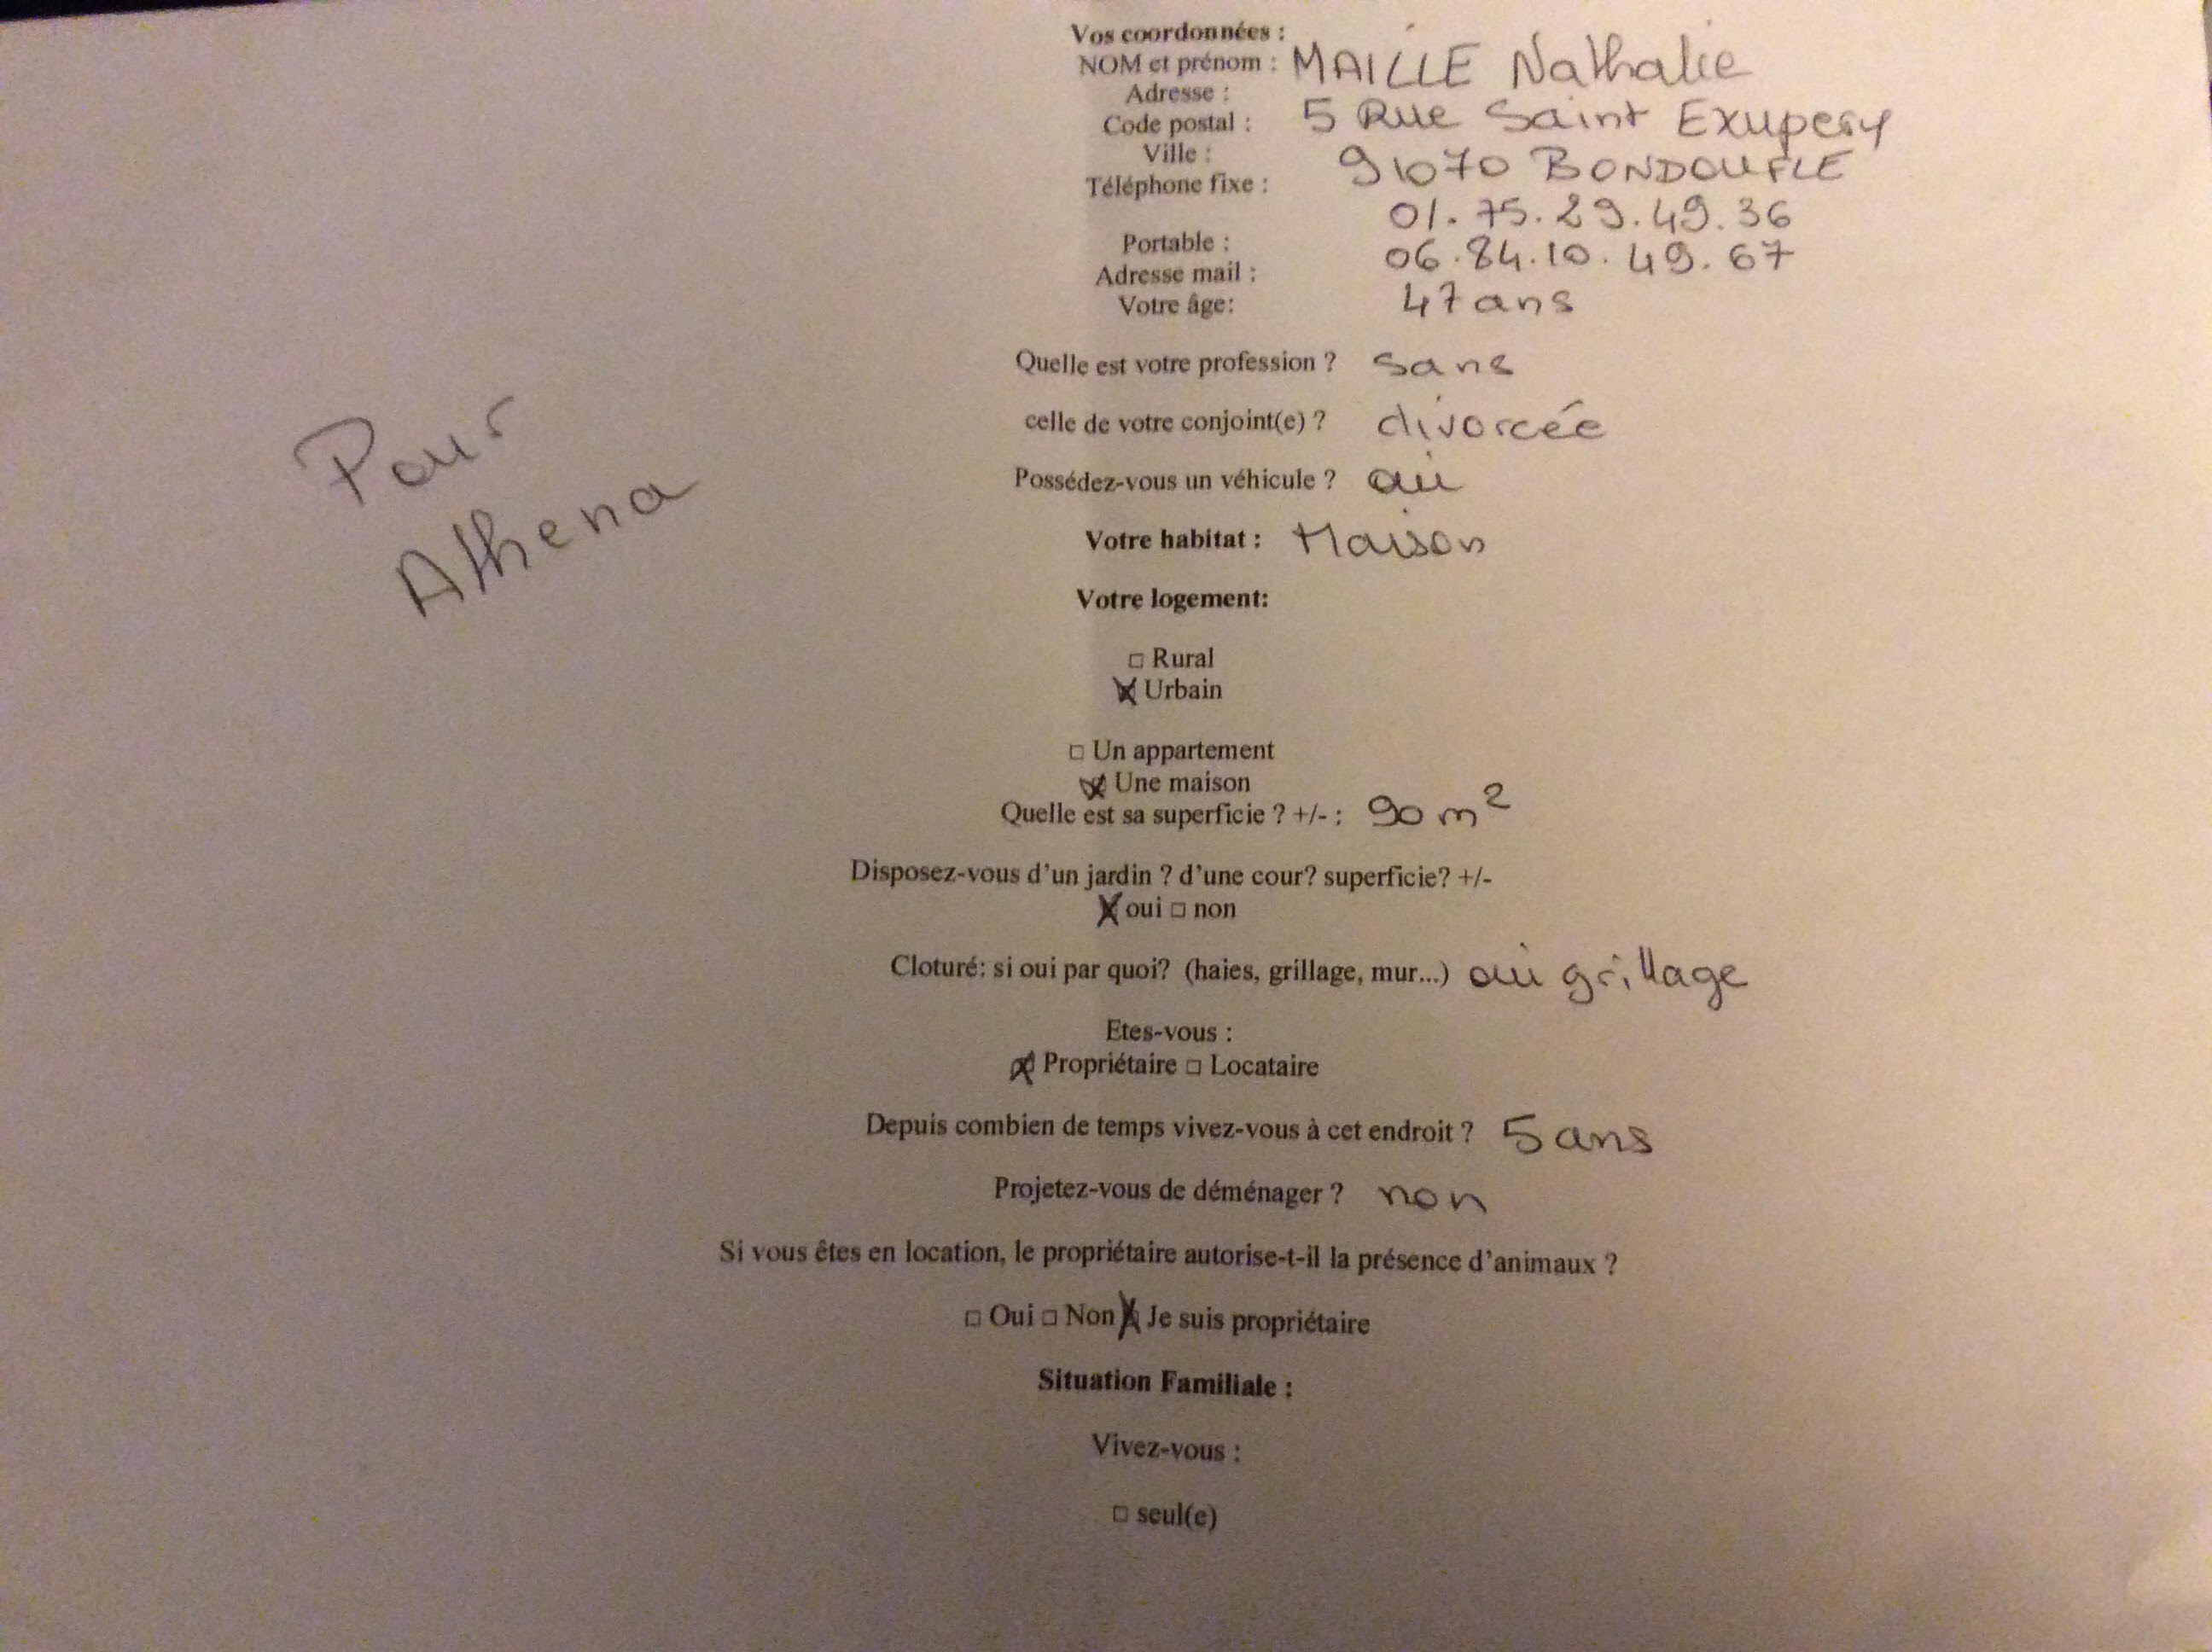 Vos coordonnées :
NOM et prénom : MAILLE Nathalie
Adresse :
Code postal : 5 Rue Saint Exupery
Ville : 91070 BONDOUFLE
Téléphone fixe :
01.75.29.49.36
Portable : 06.84.10.49.67
Adresse mail :
Votre âge: 47 ans
Quelle est votre profession ? sans
celle de votre conjoint(e) ? divorcée
Pour
Athena
Possédez-vous un véhicule ? oui
Votre habitat : Maison
Votre logement:
□ Rural
☒ Urbain
□ Un appartement
☒ Une maison
Quelle est sa superficie ? +/- : 90 m²
Disposez-vous d'un jardin ? d'une cour? superficie? +/-
☒ oui □ non
Cloturé: si oui par quoi? (haies, grillage, mur...) oui grillage
Etes-vous :
☒ Propriétaire □ Locataire
Depuis combien de temps vivez-vous à cet endroit ? 5 ans
Projetez-vous de déménager ? non
Si vous êtes en location, le propriétaire autorise-t-il la présence d'animaux ?
□ Oui □ Non ☒ Je suis propriétaire
Situation Familiale :
Vivez-vous :
□ seul(e)